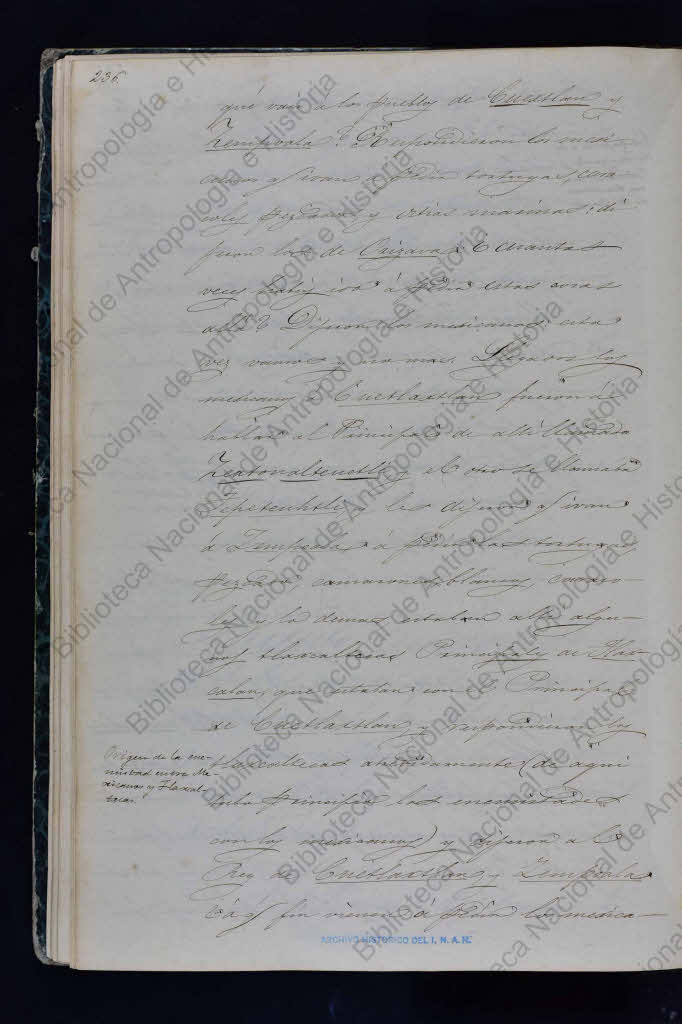 236.
qué vais a los pueblos de Cuextlan y
Zempoala? Respondieron los mexi-
canos q̃ ivan a pedir tortugas, cara
coles pezcados y ostias marinas: di
jeron los de Orizava: Cuantas
veces habeis ido á pedir estas cosas
allá? Dijeron los mexicanos: esta
vez vamos y una mas. Llegados los
mexicanos á Cuetlaxtlan fueron á
hablar al Principal de alli llamado
Zeatonaltecutli y el otro se llamaba
Tepeteuhtli le dijeron q̃ ivan
á Zempoala á pedir las tortugas
pezcado, camarones blancos, caraco-
les y lo demas estaban alli algu-
nos tlaxcaltecas Principales de Tlax-
calan, que estaban con el Principal
de Cuetlaxtlan, y respondieron los
tlaxcaltecas atrevidamente (de aqui
tubo principio las enemistades
con los mexicanos) y dijeron a el
Rey de Cuetlaxtlan y Zempoala
á q̃ fin vienen á pedir los mexica-
Origen de la ene-
mistad entre Me-
xicanos y Tlaxcal-
tecas.
ARCHIVO HISTORICO DEL I. N. A. H.
Biblioteca Nacional de Antropología e Historia